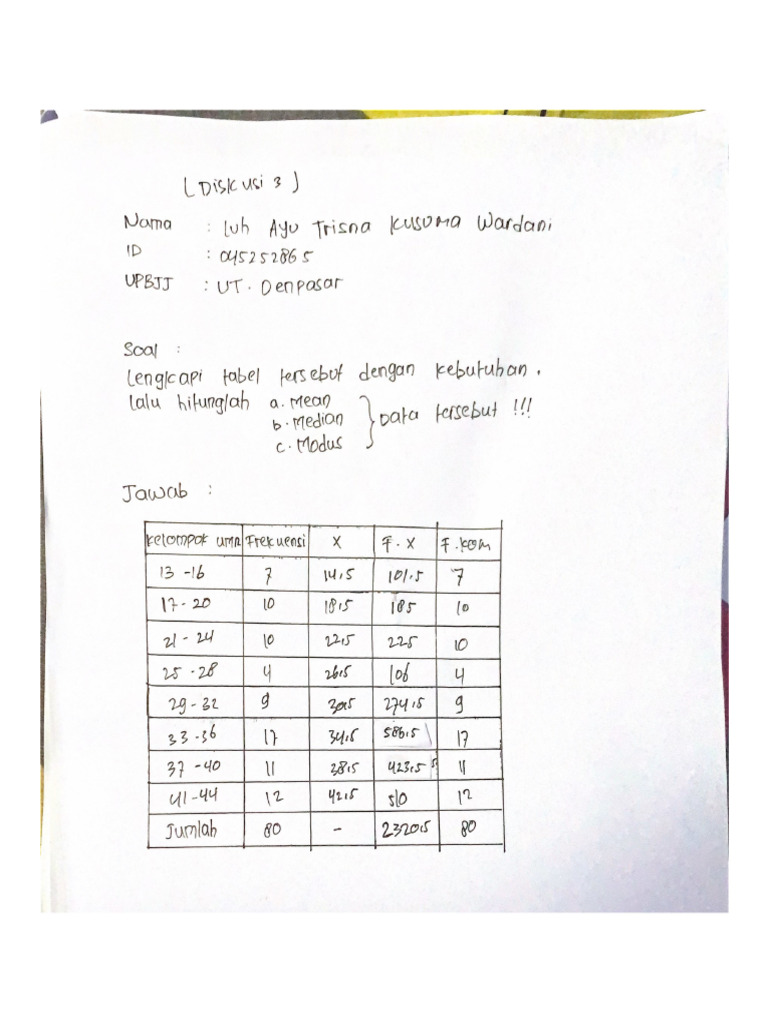 (Diskusi 3)
Nama : Luh Ayu Trisna Kusuma Wardani
ID : 045252865
UPBJJ : UT. Denpasar
Soal :
Lengkapi tabel tersebut dengan kebutuhan.
lalu hitunglah a. Mean
b. Median } Data tersebut !!!
c. Modus
Jawab :
Kelompok umr Frekuensi X F.X F.kom
13-16 7 14,5 101,5 7
17-20 10 18,5 185 10
21-24 10 22,5 225 10
25-28 4 26,5 106 4
29-32 9 30,5 274,5 9
33-36 17 34,5 586,5 17
37-40 11 38,5 423,5 11
41-44 12 42,5 510 12
Jumlah 80 - 2320,5 80